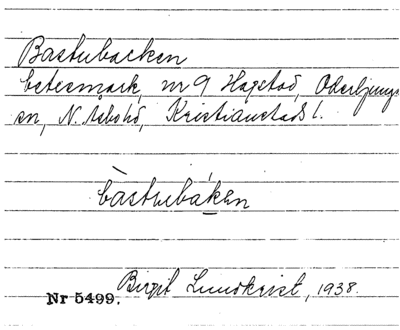 Bastubacken
betesmark, nr 9 Hagstad, Oderljunga
sn, N. Åsbohd, Kristianstads l.
bàstubákən
Birgit Lundkvist, 1938.
Nr 5499.